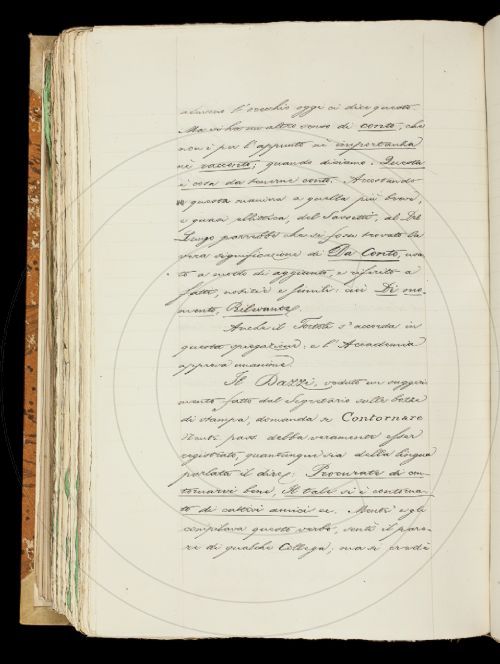 almeno l'orecchio oggi ci dice questo.
Ma vi ha un altro senso di conto, che
non è per l'appunto nè importanza
nè racconto; quando diciamo: Questa
è cosa da tenerne conto. Accostando
questa maniera a quella più breve,
e quasi ellittica, del Sassetti, al Del
Lungo parrebbe che si fosse trovato la
vera significazione di Da Conto, usa-
to a modo di aggiunto, e riferito a
fatti, notizie e simili: cioè Di mo-
mento, Rilevante.
Anche il Tortoli s'accorda in
questa spiegazione: e l'Accademia
approva unanime.
Il Dazzi, veduto un suggeri-
mento fatto dal Segretario sulle bozze
di stampa, domanda se Contornare
Neutr. pass. debba veramente esser
registrato, quantunque sia della lingua
parlata il dire: Procurate di con-
tornarvi bene, Il tale si è contorna-
to di cattivi amici ec. Mentr'egli
compilava questo verbo, sentì il pare-
re di qualche Collega; ma si credè